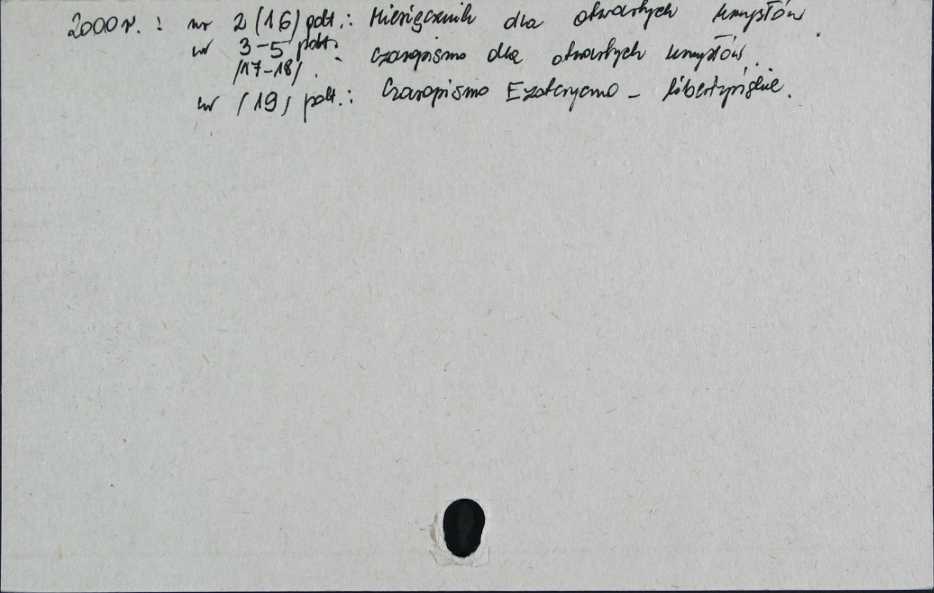 2000 r. : nr 2 (16) podt.: Miesięcznik dla otwartych umysłów.
nr 3-5 podt. : czasopismo dla otwartych umysłów.
/17-18/
nr /19/ podt.: Czasopismo Ezoteryczno - libertyńskie.